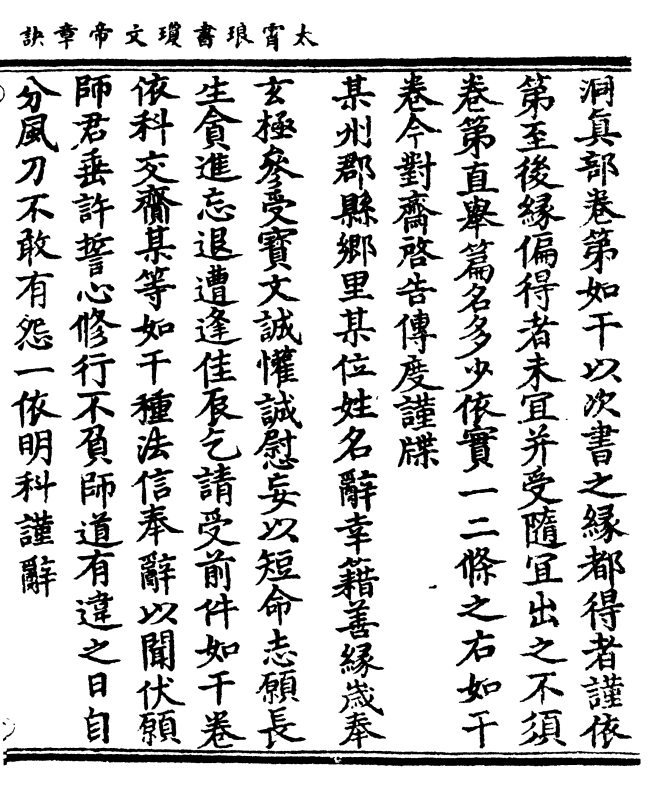 太霄琅書瓊文帝章訣
洞真部卷第如干以次書之緣都得者謹依
第至後緣偏得者未宜并受隨宜出之不須
卷第直舉篇名多少依實一二條之右如干
卷今對齋啓告傳度謹牒
某州郡縣鄉里某位姓名辭幸籍善緣歲奉
玄極參受寶文誠懽誠慰妄以短命志願長
生貪進忘退遭逢佳辰乞請受前件如干卷
依科交齎某等如干種法信奉辭以聞伏願
師君垂許誓心修行不負師道有違之日自
分風刀不敢有怨一依明科謹辭